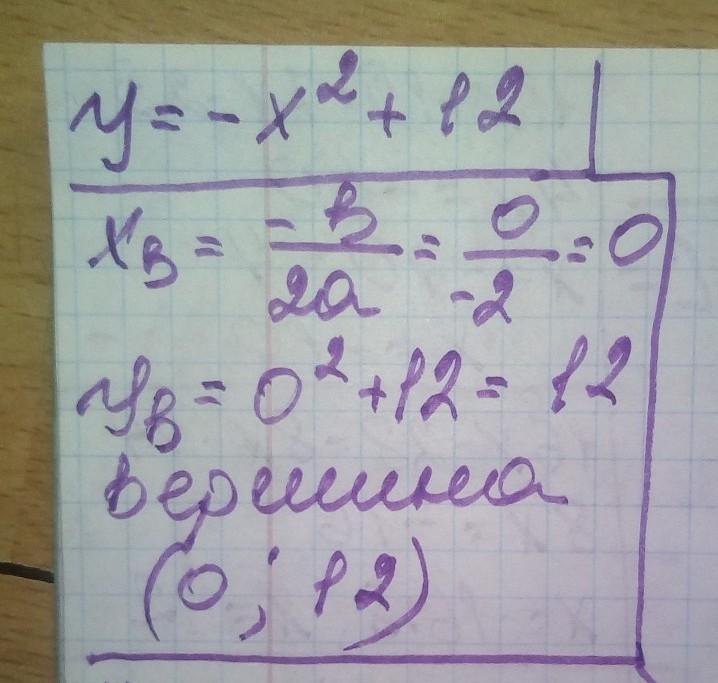 y = - x² + 12
xв = -в/2a = 0/-2 = 0
yв = 0² + 12 = 12
вершина
(0 ; 12)